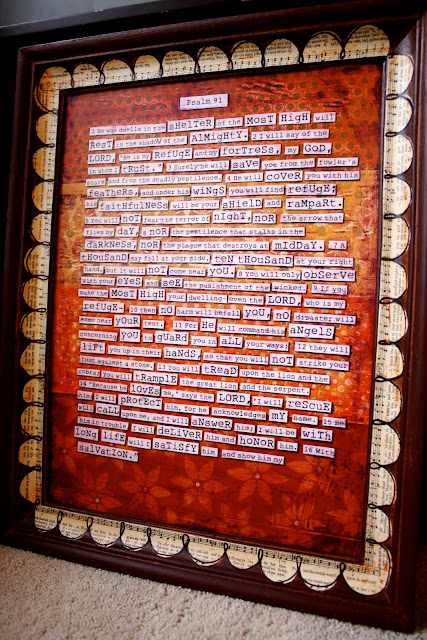 Psalm 91
1 He who dwells in the sHeLTeR of the MosT HigH will
ResT in the shadow of the ALMigHTY. 2 I will say of the
LORD, "He is my ReFUgE and my forTResS, my GOD,
in whom I TRuST." 3 Surely he will saVe you from the fowler's
snare and from the deadly pestilence. 4 He will CoVeR you with his
feaTHeRs, and under his wiNgs you will find ReFUgE;
his faiTHfuLNesS will be your sHieLD and RaMpaRT.
5 You will NOT fear the terror of NIgHT, NOR the arrow that
flies by daY, 6 NOR the pestilence that stalks in the
daRkNesS, NOR the plague that destroys at MIdDaY. 7 A
THOUsaND may fall at your side, TeN THOUsaND at your right
hand, but it will NOT come near yoU. 8 You will only oBsERVe
with your eYes and seE the punishment of the wicked. 9 If you
make the MosT HigH your dwelling- even the LORD, who is my
ReFUgE- 10 then NO harm will befall yOU, NO disaster will
come near yOUR tent. 11 For He will command his aNgeLs
concerning yOU to gUaRd you in aLL your ways; 12 they will
LifT you up in their HaNDs, so that you will NOT strike your
foot against a stone. 13 You will TReaD upon the lion and the
cobra; you will TRaMpLe the great lion and the serpent.
14 "Because he LOVEs me," says the LORD, "I will ResCuE
him; I will pROTecT him, for he acknowledges mY name. 15 He
will caLL upon me, and I will aNsweR him; I will be wiTH
him in trouble, I will deLiVeR him and HoNOR him. 16 With
LoNg LifE will I saTisfY him and show him my
saLVaTIoN."